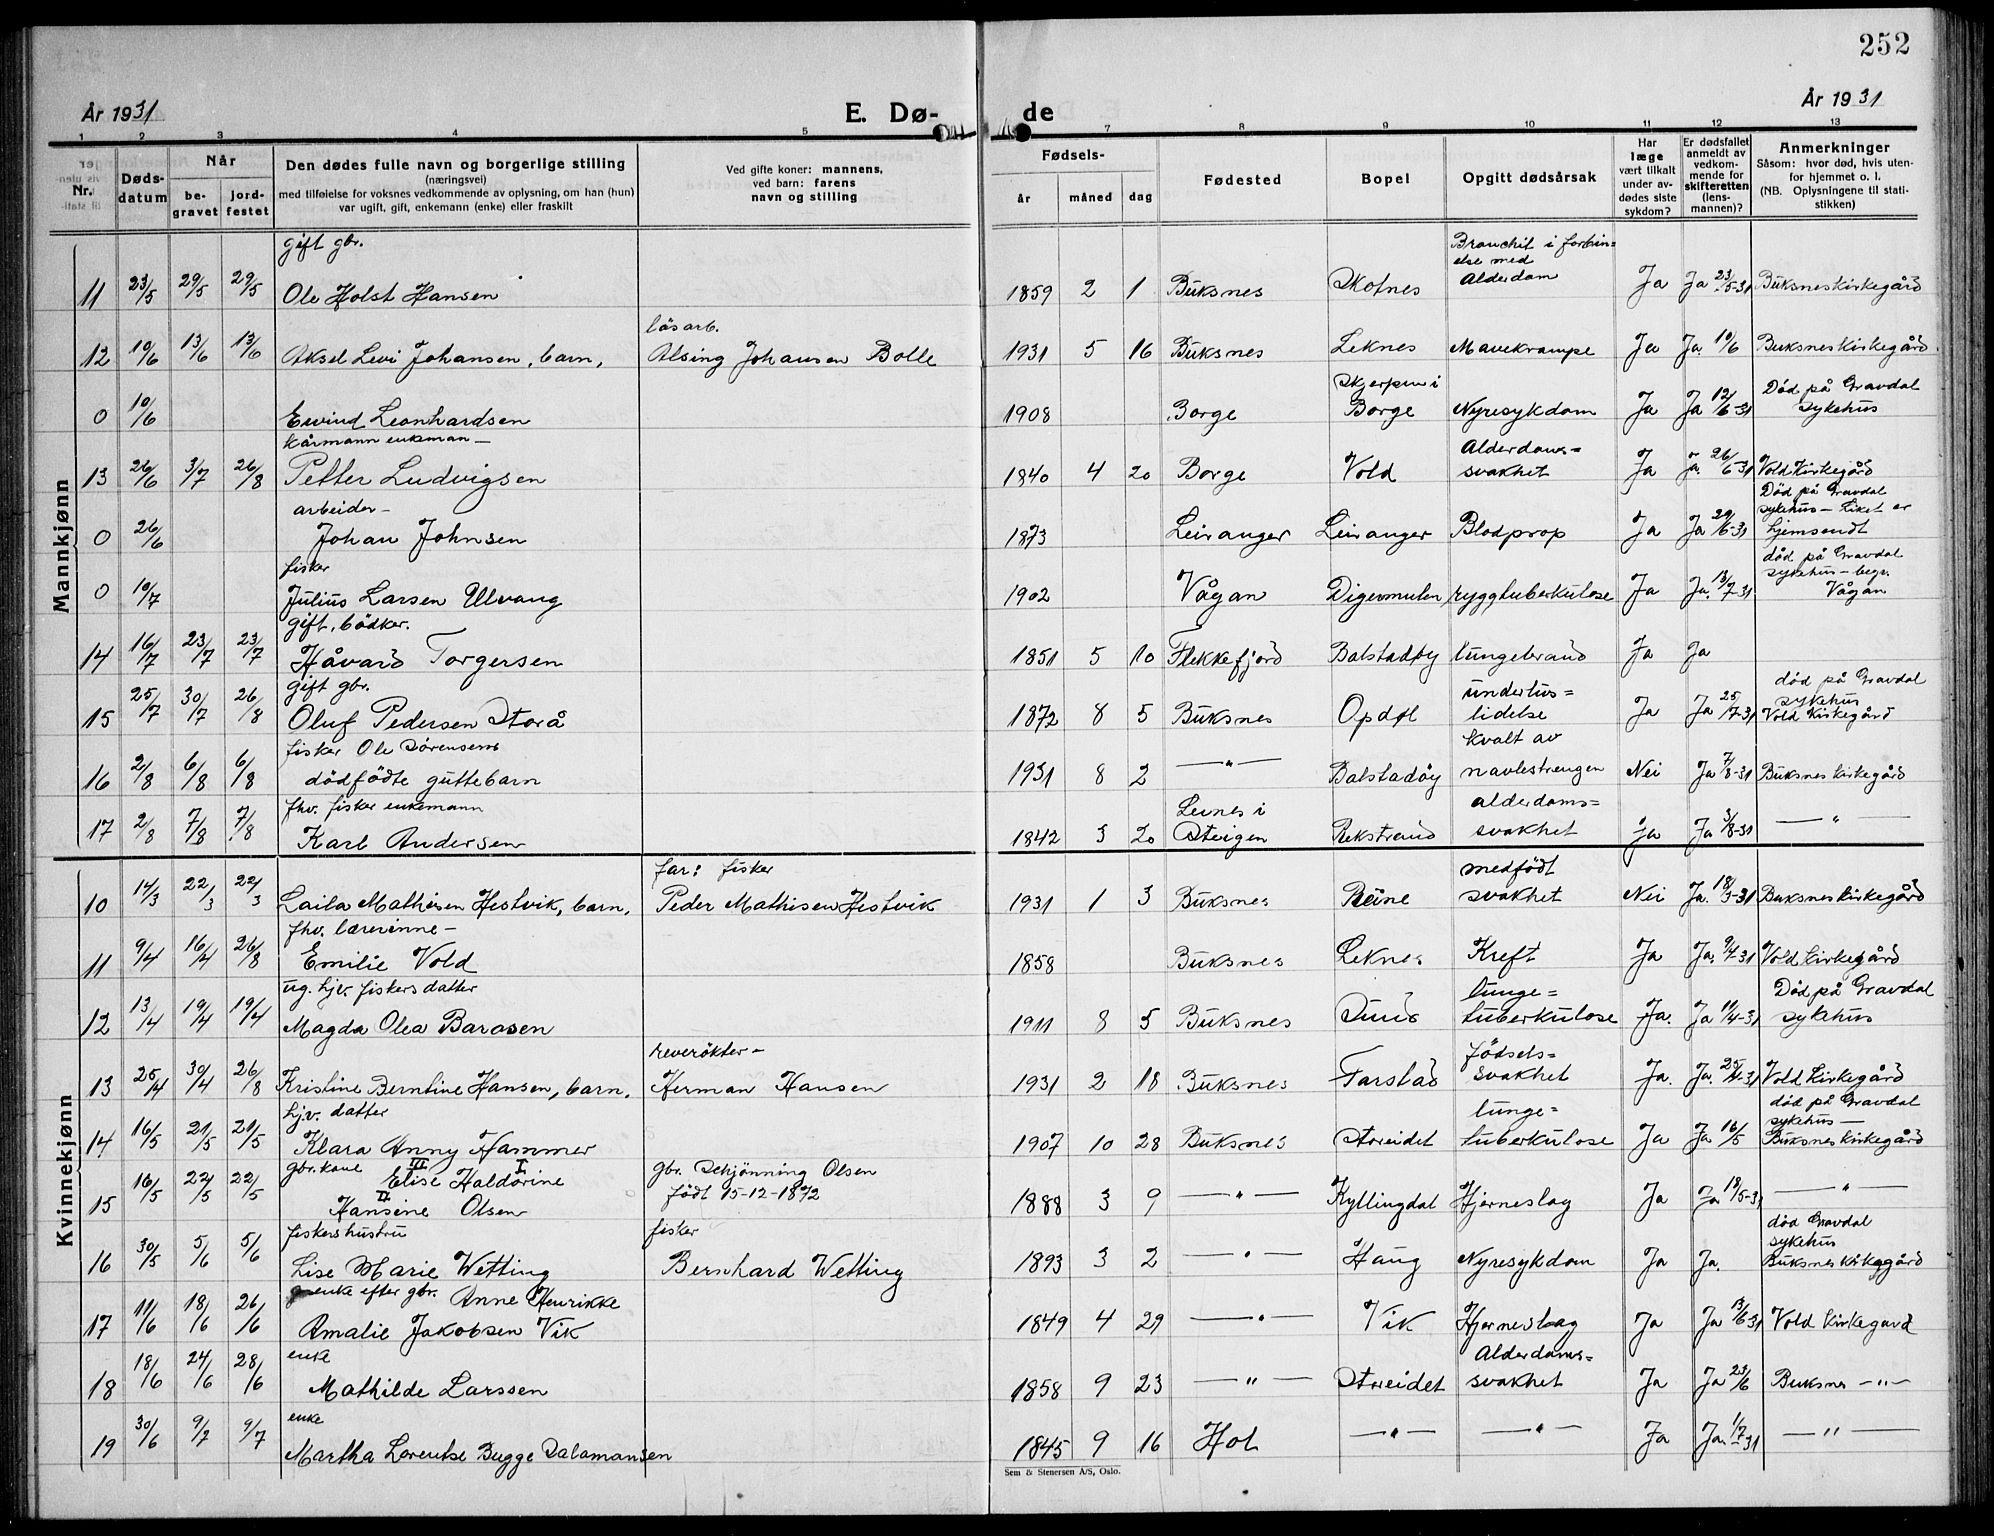 252
År 1931 E. Dø- de År 1931
1 2 3 4 5 7 8 9 10 11 12 13
Nr. Døds-datum Når be-gravet jord-festet Den dødes fulle navn og borgerlige stilling (næringsvei) med tilføielse for voksnes vedkommende av oplysning, om han (hun) var ugift, gift, enkemann (enke) eller fraskilt Ved gifte koner: mannens, ved barn: farens navn og stilling Fødsels- år måned dag Fødested Bopel Opgitt dødsårsak Har læge vært tilkalt under av-dødes siste sykdom? Er dødsfallet anmeldt av vedkom-mende for skifteretten (lens-mannen)? Anmerkninger Såsom: hvor død, hvis uten-for hjemmet o. l. (NB. Oplysningene til stati-stikken)
Mannkjønn
11 23/5 29/5 29/5 gift gbr. Ole Holst Hansen 1859 2 1 Buksnes Skotnes Bronchit i forbin=else med Alderdom Ja Ja 23/5-31 Buksnes kirkegård
12 10/6 13/6 13/6 Aksel Levi Johansen, barn, løsarb. Alsing Johansen Bolle 1931 5 16 Buksnes Leknes Mavekrampe Ja Ja. 10/6 Buksnes kirkegård
0 10/6 Eivind Leonhardsen 1908 Borge Skjerpen i Borge Nyresykdom Ja Ja 12/6-31 Død på Gravdal sykehus
13 26/6 3/7 26/8 kårmann enkeman— Petter Ludvigsen 1840 4 20 Borge Vold Alderdoms=svakhet Ja Ja. 26/6-31 Vold Kirkegård
0 26/6 arbeider— Johan Johnsen 1873 Leiranger Leiranger Blodprop Ja Ja 29/6-31 Død på Gravdal sykehus— Liket er hjemsendt
0 10/7 fisker Julius Larsen Ulvang 1902 Vågan Digermulen ryggtuberkulose Ja Ja. 13/7-31 død på Gravdal sykehus—begr. Vågan
14 16/7 23/7 23/7 gift, bödker. Håvard Torgersen 1851 5 10 Flekkefjord Balstadøy lungebrand Ja Ja
15 25/7 30/7 26/8 gift gbr. Oluf Pedersen Storå 1872 8 5 Buksnes Opdøl underlivs=lidelse Ja Ja 25/7-31 død på Gravdal sykehus Vold Kirkegård
16 2/8 6/8 6/8 fisker Ole Sørensens dödfödte guttebarn 1931 8 2 —"— Balstadöy kvalt av navlestrengen Nei Ja 7/8-31 Buksnes kirkegård
17 2/8 7/8 7/8 fhv. fisker enkemann Karl Andersen 1842 3 20 Leines i Steigen Rekstrand alderdoms=svakhet ja Ja 3/8-31 —"—
Kvinnekjønn
10 14/3 22/3 22/3 Laila Mathisen Hestvik, barn. far: fisker Peder Mathisen Hestvik 1931 1 3 Buksnes Reine medfödt svakhet Nei Ja. 18/3-31 Buksnes kirkegård
11 9/4 16/4 26/8 fhv. lærerinne— Emilie Vold 1858 Buksnes Leknes Kreft Ja Ja. 9/4-31 Vold Kirkegård
12 13/4 19/4 19/4 ug. hjv. fiskers datter Magda Olea Barosen 1911 8 5 Buksnes Sund lunge=tuberkulose Ja. Ja 11/4-31 Død på Gravdal sykehus
13 25/4 30/4 26/8 Kristine Berntine Hansen, barn. reverökter— Herman Hansen 1931 2 18 Buksnes Farstad födsels=svakhet Ja. Ja. 25/4-31 Vold Kirkegård
14 16/5 21/5 21/5 hjv. datter Klara Anny Hammer 1907 10 28 Buksnes Storeidet lunge=tuberkulose Ja Ja 16/5 død på Gravdal sykehus— Buksnes kirkegård
15 16/5 22/5 22/5 gbr. kone III I Elise Haldorine II Hansine Olsen gbr. Schjönning Olsen födt 15-12-1872 1888 3 9 —"— Kyllingdal Hjerneslag Ja Ja 18/5-31 —"—
16 30/5 5/6 5/6 fiskershustru Lise Marie Wetting fisker Bernhard Wetting 1893 3 2 —"— Haug Nyresykdom Ja Ja. død Gravdal sykehus Buksnes kirkegård
17 11/6 18/6 26/6 enke efter gbr. Anne Henrikke Amalie Jakobsen Vik 1849 4 29 —"— Vik Hjerneslag Ja Ja 13/6 31 Vold Kirkegard
18 18/6 24/6 28/6 enke Mathilde Larssen 1858 9 23 —"— Storeidet Alderdoms=svakhet Ja Ja 23/6 Buksnes —"—
19 30/6 9/7 9/7 enke Martha Lorentse Bugge Salamansen 1845 9 16 Hol —"— —"— Ja Ja. 1/7 31 —"—
Sem & Stenersen A/S, Oslo.